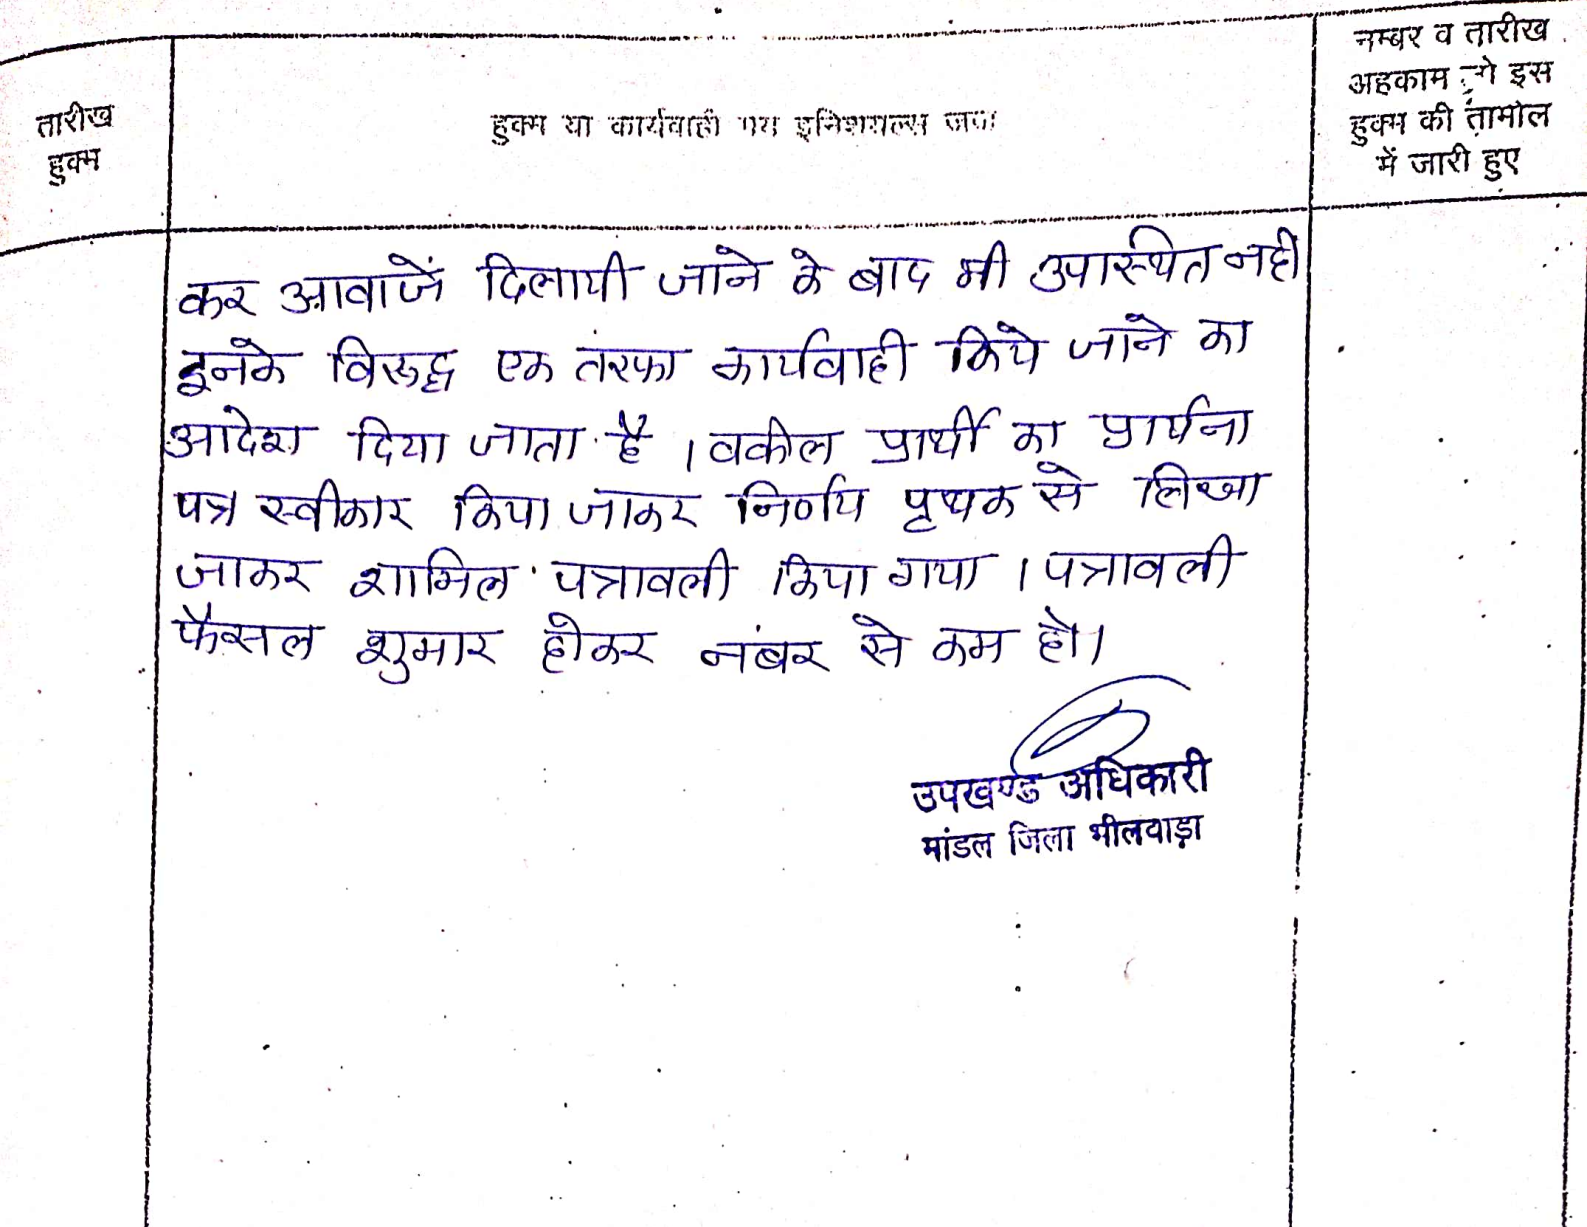 तारीख
हुक्म
हुक्म या कार्यवाही मय इनिशियल्स जज
नम्बर व तारीख
अहकाम जो इस
हुक्म की तामील
में जारी हुए
कर आवाजें दिलायी जाने के बाद भी उपास्थित नही
इनके विरूद्ध एक तरफा कार्यवाही किये जाने का
आदेश दिया जाता है । वकील प्रार्थी का प्रार्थना
पत्र स्वीकार किया जाकर निर्णय पृथक से लिखा
जाकर शामिल पत्रावली किया गया । पत्रावली
फैसल शुमार होकर नंबर से कम हो।
उपखण्ड अधिकारी
मांडल जिला भीलवाड़ा